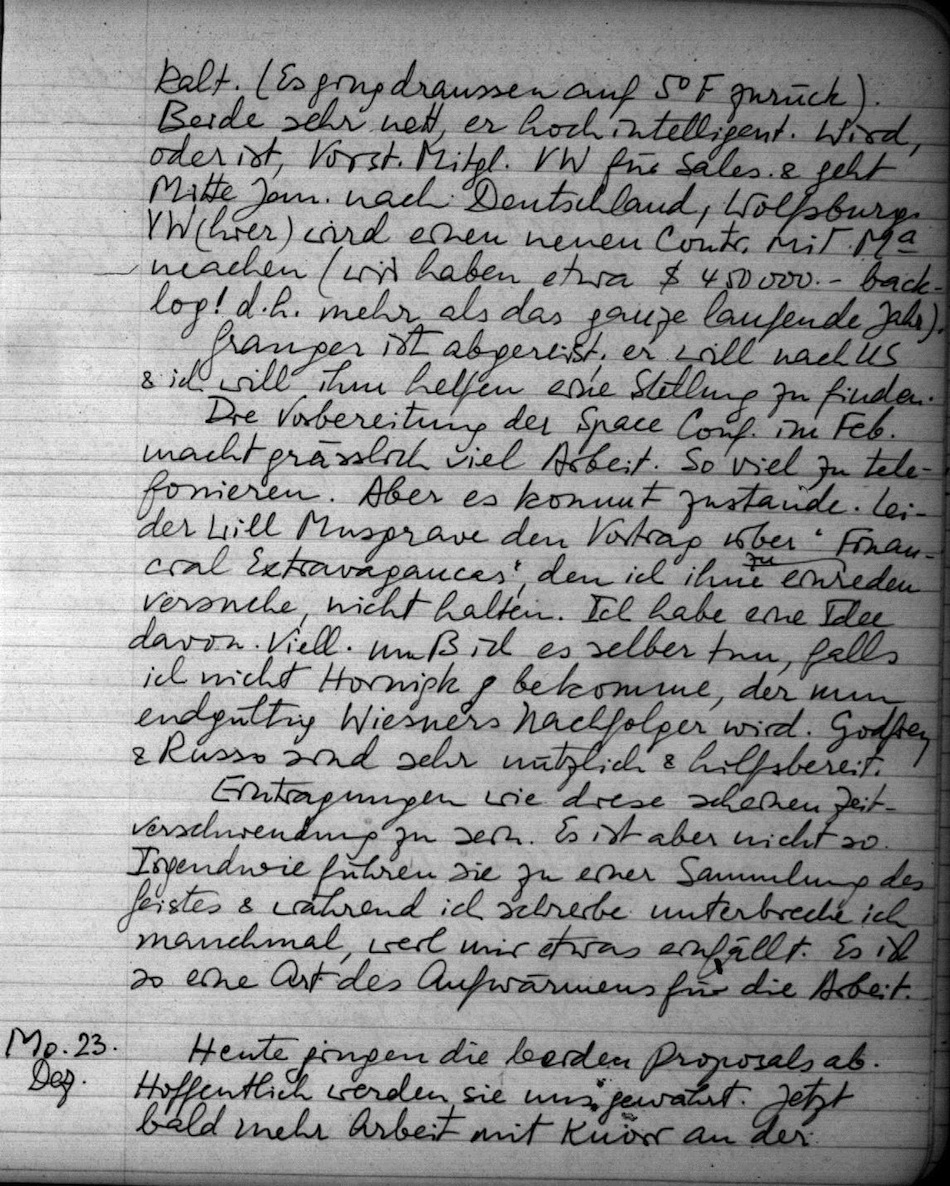 kalt. (Es ging draussen auf 5° F zurück).
Beide sehr nett, er hochintelligent. Wird,
oder ist, Vorst. Mitgl. VW für Sales. & geht
Mitte Jan. nach Deutschland, Wolfsburg.
VW (hier) wird einen neuen Contr. mit Ma
machen (wir haben etwa $ 450000.- back-
log! d.h. mehr als das ganze laufende Jahr).
Granger ist abgereist, er will nach US
& ich will ihm helfen eine Stellung zu finden.
Die Vorbereitung der Space Conf. im Feb.
macht grässlich viel Arbeit. So viel zu tele-
fonieren. Aber es kommt zustande. Lei-
der will Musgrave den Vortrag über "Finan-
cial Extravagancas", den ich ihm zu einreden
versuche, nicht halten. Ich habe eine Idee
davon. Viell. muß ich es selber tun, falls
ich nicht Hornig bekomme, der nun
endgültig Wiesners Nachfolger wird. Godfrey
& Russo sind sehr nützlich & hilfsbereit.
Eintragungen wie diese scheinen Zeit-
verschwendung zu sein. Es ist aber nicht so.
Irgendwie führen sie zu einer Sammlung des
Geistes & während ich schreibe unterbreche ich
manchmal, weil mir etwas einfällt. Es ist
so eine Art des Aufwärmens für die Arbeit.
Mo. 23. Heute gingen die beiden Proposals ab.
Dez. Hoffentlich werden sie uns gewährt. Jetzt
bald mehr Arbeit mit Knorr an der